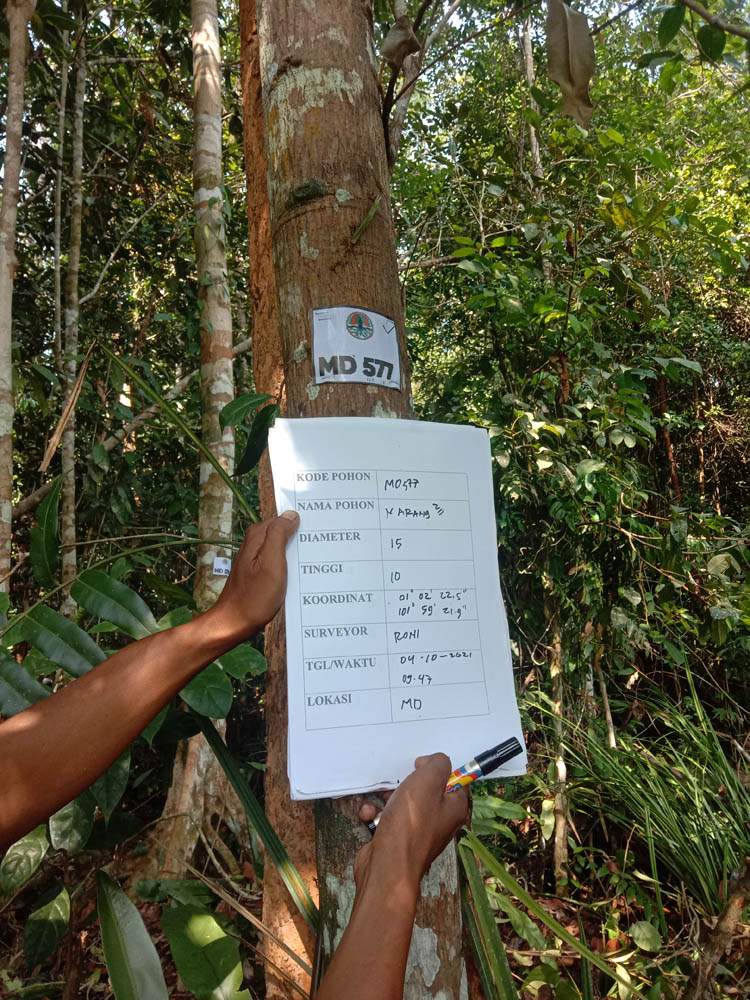 MD 577
KODE POHON MD577
NAMA POHON
DIAMETER 15
TINGGI 10
KOORDINAT 01° 02' 22.5"
101° 59' 21.9"
SURVEYOR RONI
TGL/WAKTU 04-10-2021
09.47
LOKASI MD